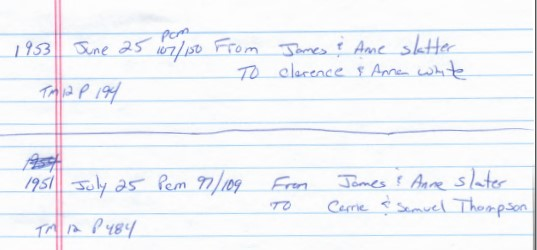 1953 June 25 Pcm 107/150 From James & Anne slatter
TO clarence & Anna white
TM 12 P 194
1951 July 25 Pcm 97/109 From James & Anne Slater
TO Carrie & Samuel Thompson
TM 12 P 484